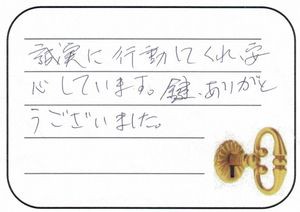 誠実に行動してくれ、安
心しています。鍵、ありがと
うございました。